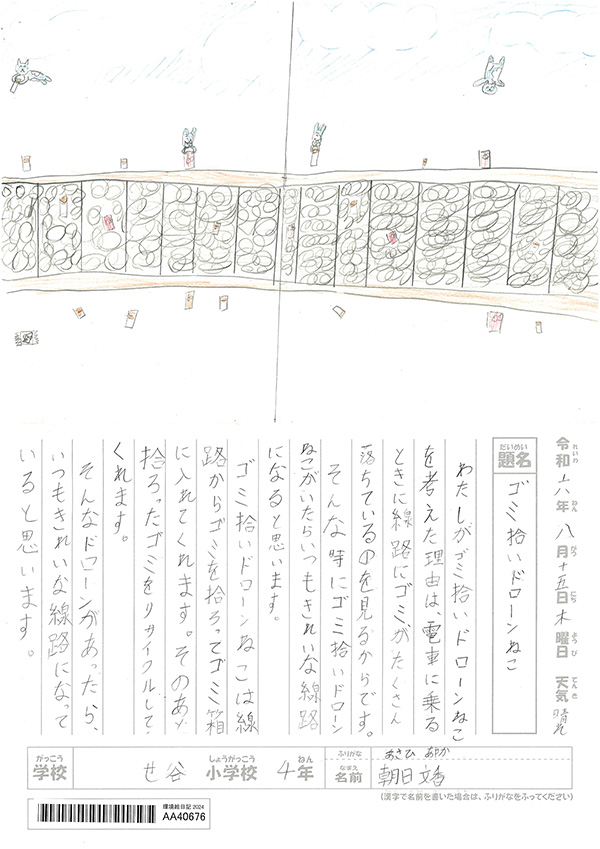 令和六年八月十五日木曜日 天気 晴れ
れいわ ねん がつ にち ようび てんき
だいめい
題名 ゴミ拾いドローンねこ
わたしがゴミ拾いドローンねこ
を考えた理由は、電車に乗る
ときに線路にゴミがたくさん
落ちているのを見るからです。
そんな時にゴミ拾いドローン
ねこがいたらいつもきれいな線路
になると思います。
ゴミ拾いドローンねこは線
路からゴミを拾ってゴミ箱
に入れてくれます。そのあと
拾ったゴミをリサイクルして
くれます。
そんなドローンがあったら、
いつもきれいな線路になって
いると思います。
がっこう しょうがっこう ねん
学校 せ谷 小学校 4年
ふりがな あさひ あやか
なまえ
名前 朝日 文香
(漢字で名前を書いた場合は、ふりがなをふってください)
環境絵日記 2024
AA40676